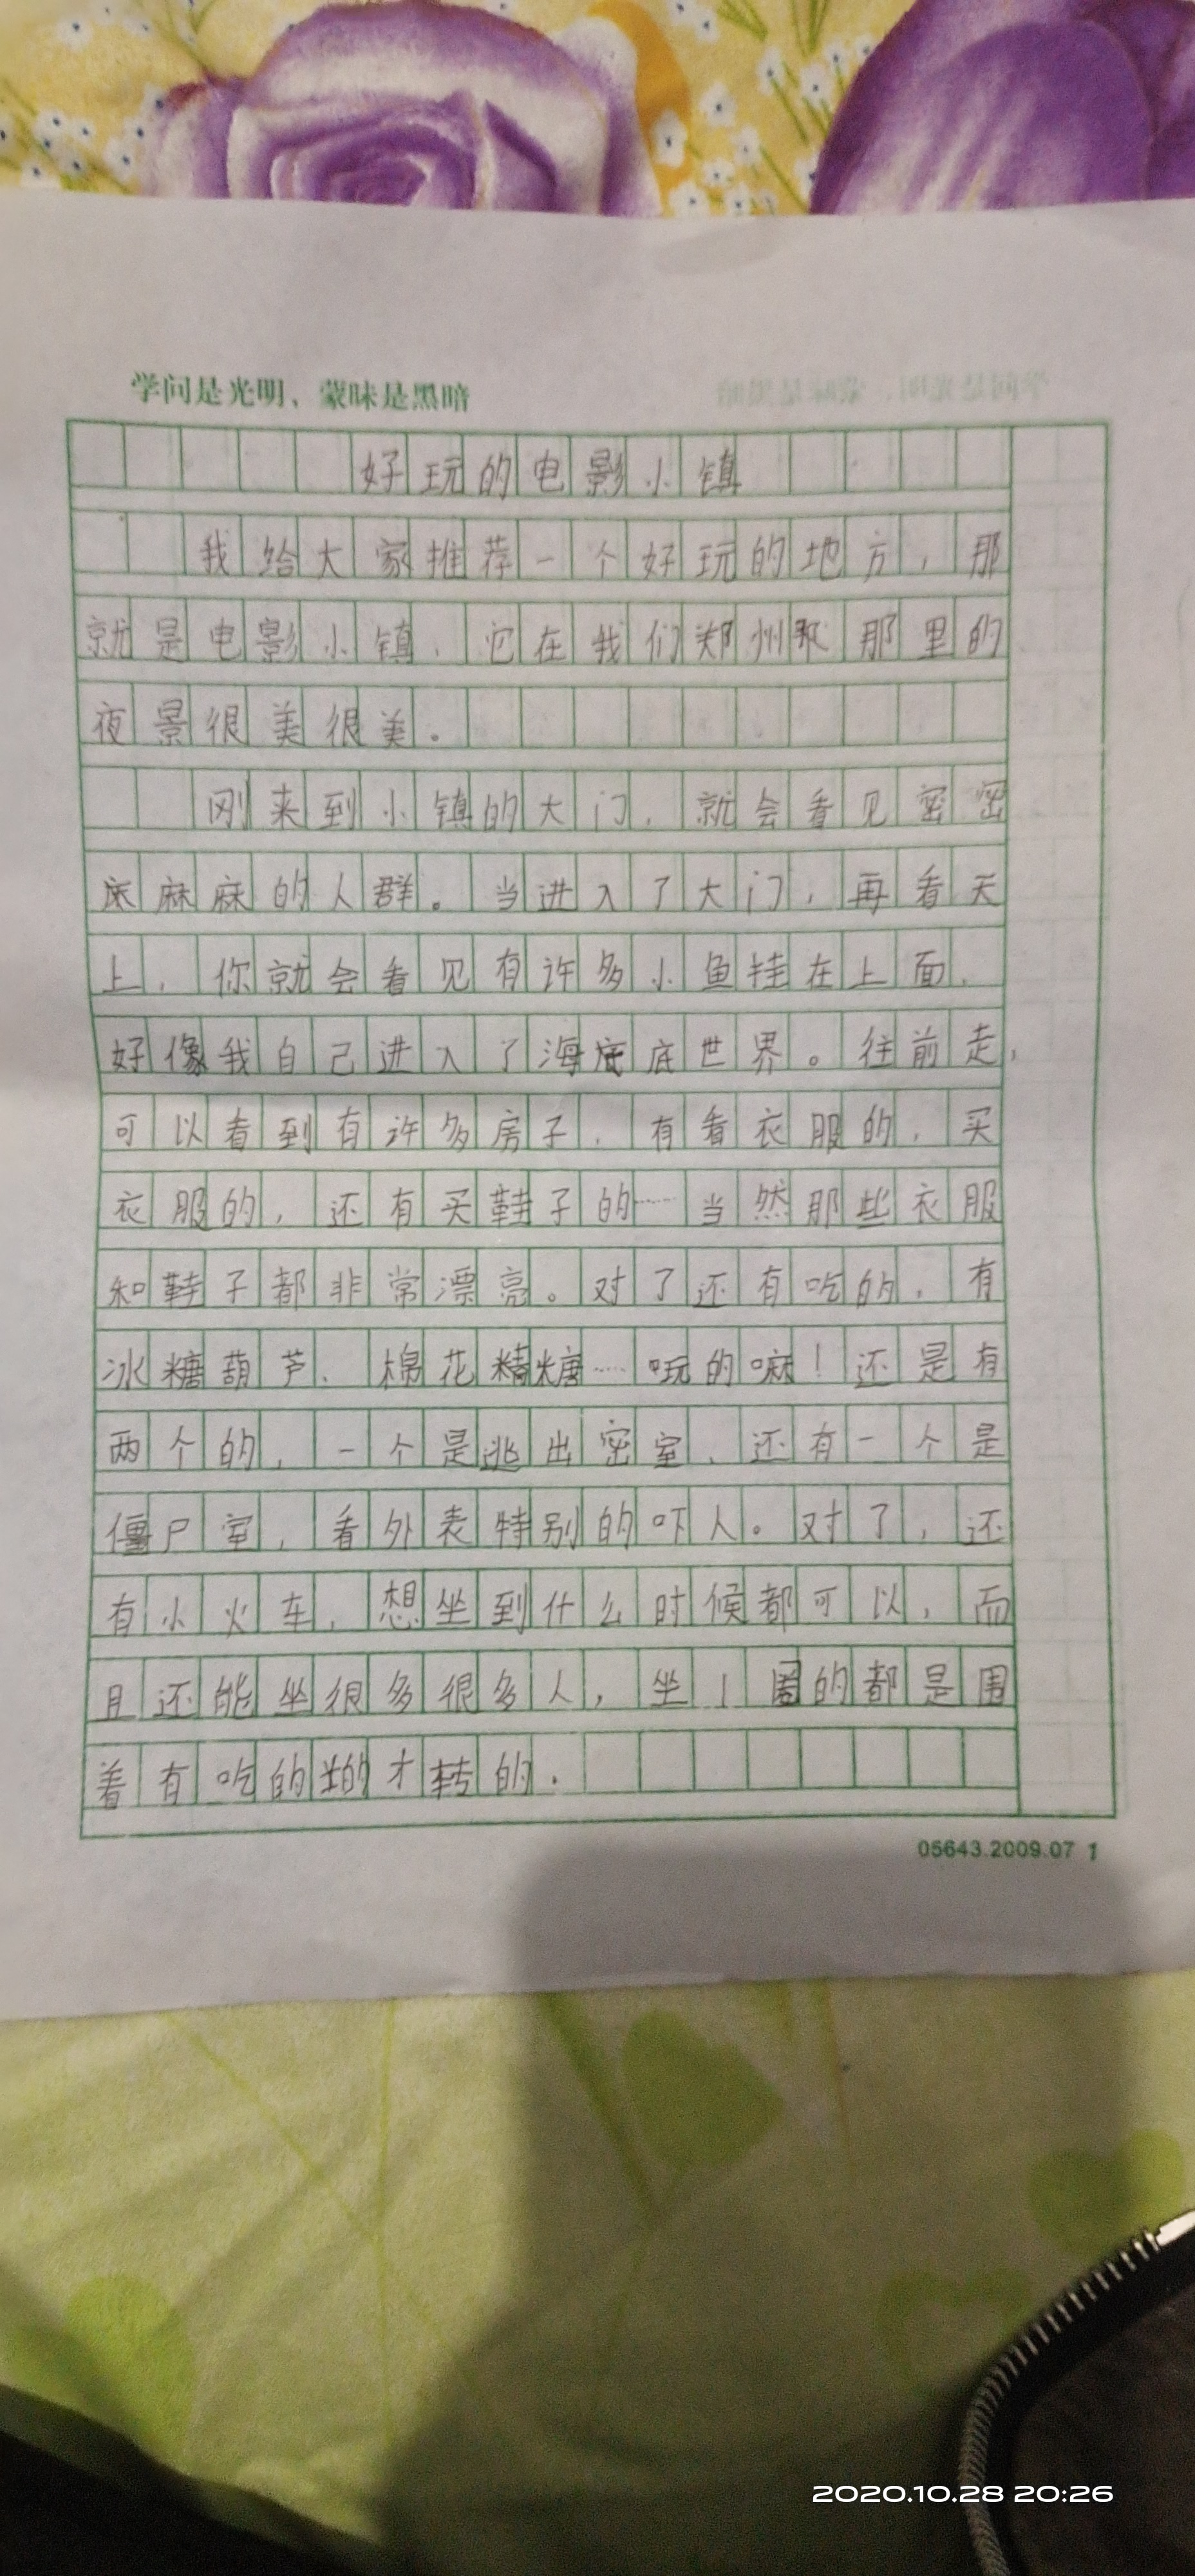 学问是光明、蒙昧是黑暗
好玩的电影小镇
我给大家推荐一个好玩的地方，那
就是电影小镇，它在我们郑州 那里的
夜景很美很美。
刚来到小镇的大门，就会看见密密
麻麻麻的人群。当进入了大门，再看天
上，你就会看见有许多小鱼挂在上面，
好像我自己进入了海底底世界。往前走，
可以看到有许多房子，有看衣服的，买
衣服的，还有买鞋子的……当然那些衣服
和鞋子都非常漂亮。对了还有吃的，有
冰糖葫芦、棉花糖……玩的嘛！还是有
两个的，一个是逃出密室，还有一个是
僵尸室，看外表特别的吓人。对了，还
有小火车，想坐到什么时候都可以，而
且还能坐很多很多人，坐1圈的都是围
着有吃的 才转的.
05643.2009.07 1
2020.10.28 20:26